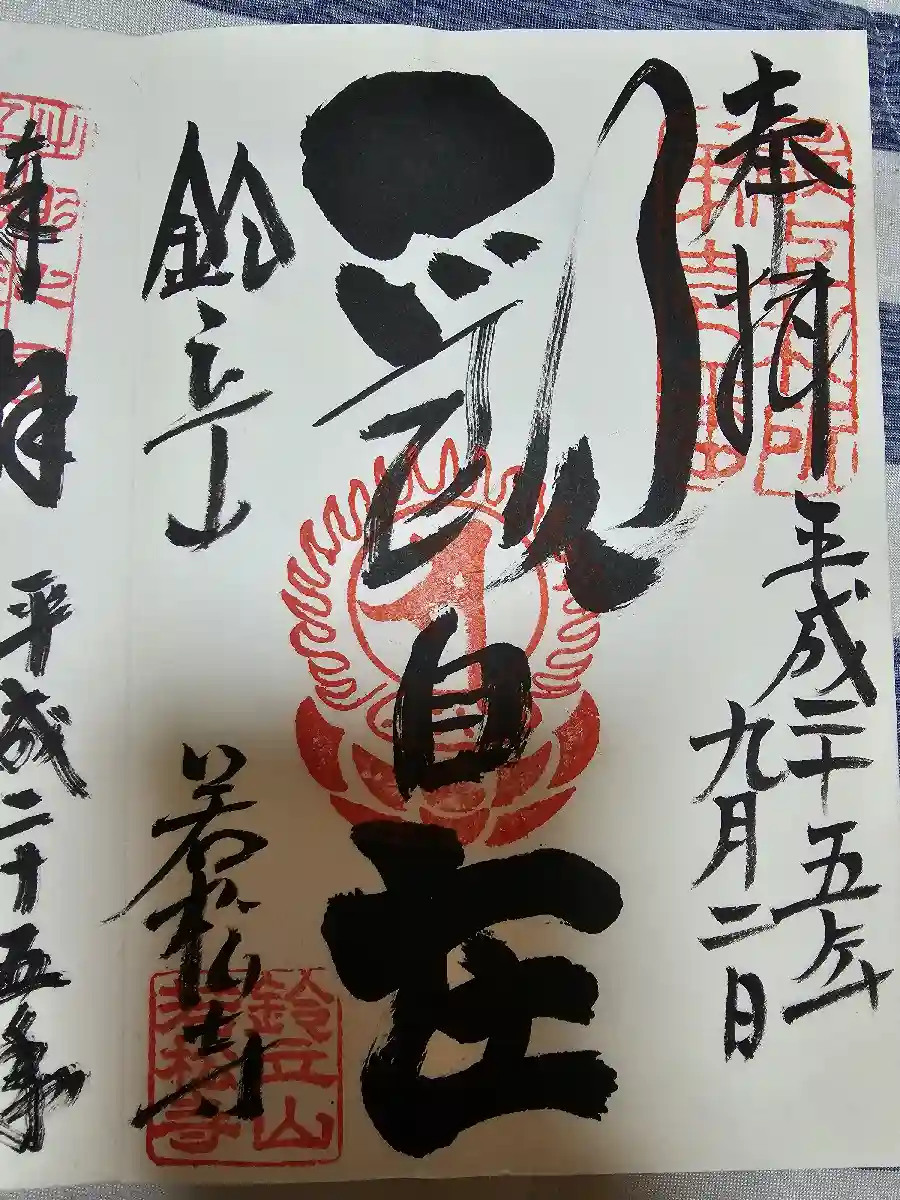 奉拝 平成二十五年
九月二日
観自在
鈴立山
若松寺
鈴立山
若松寺
平成二十五年